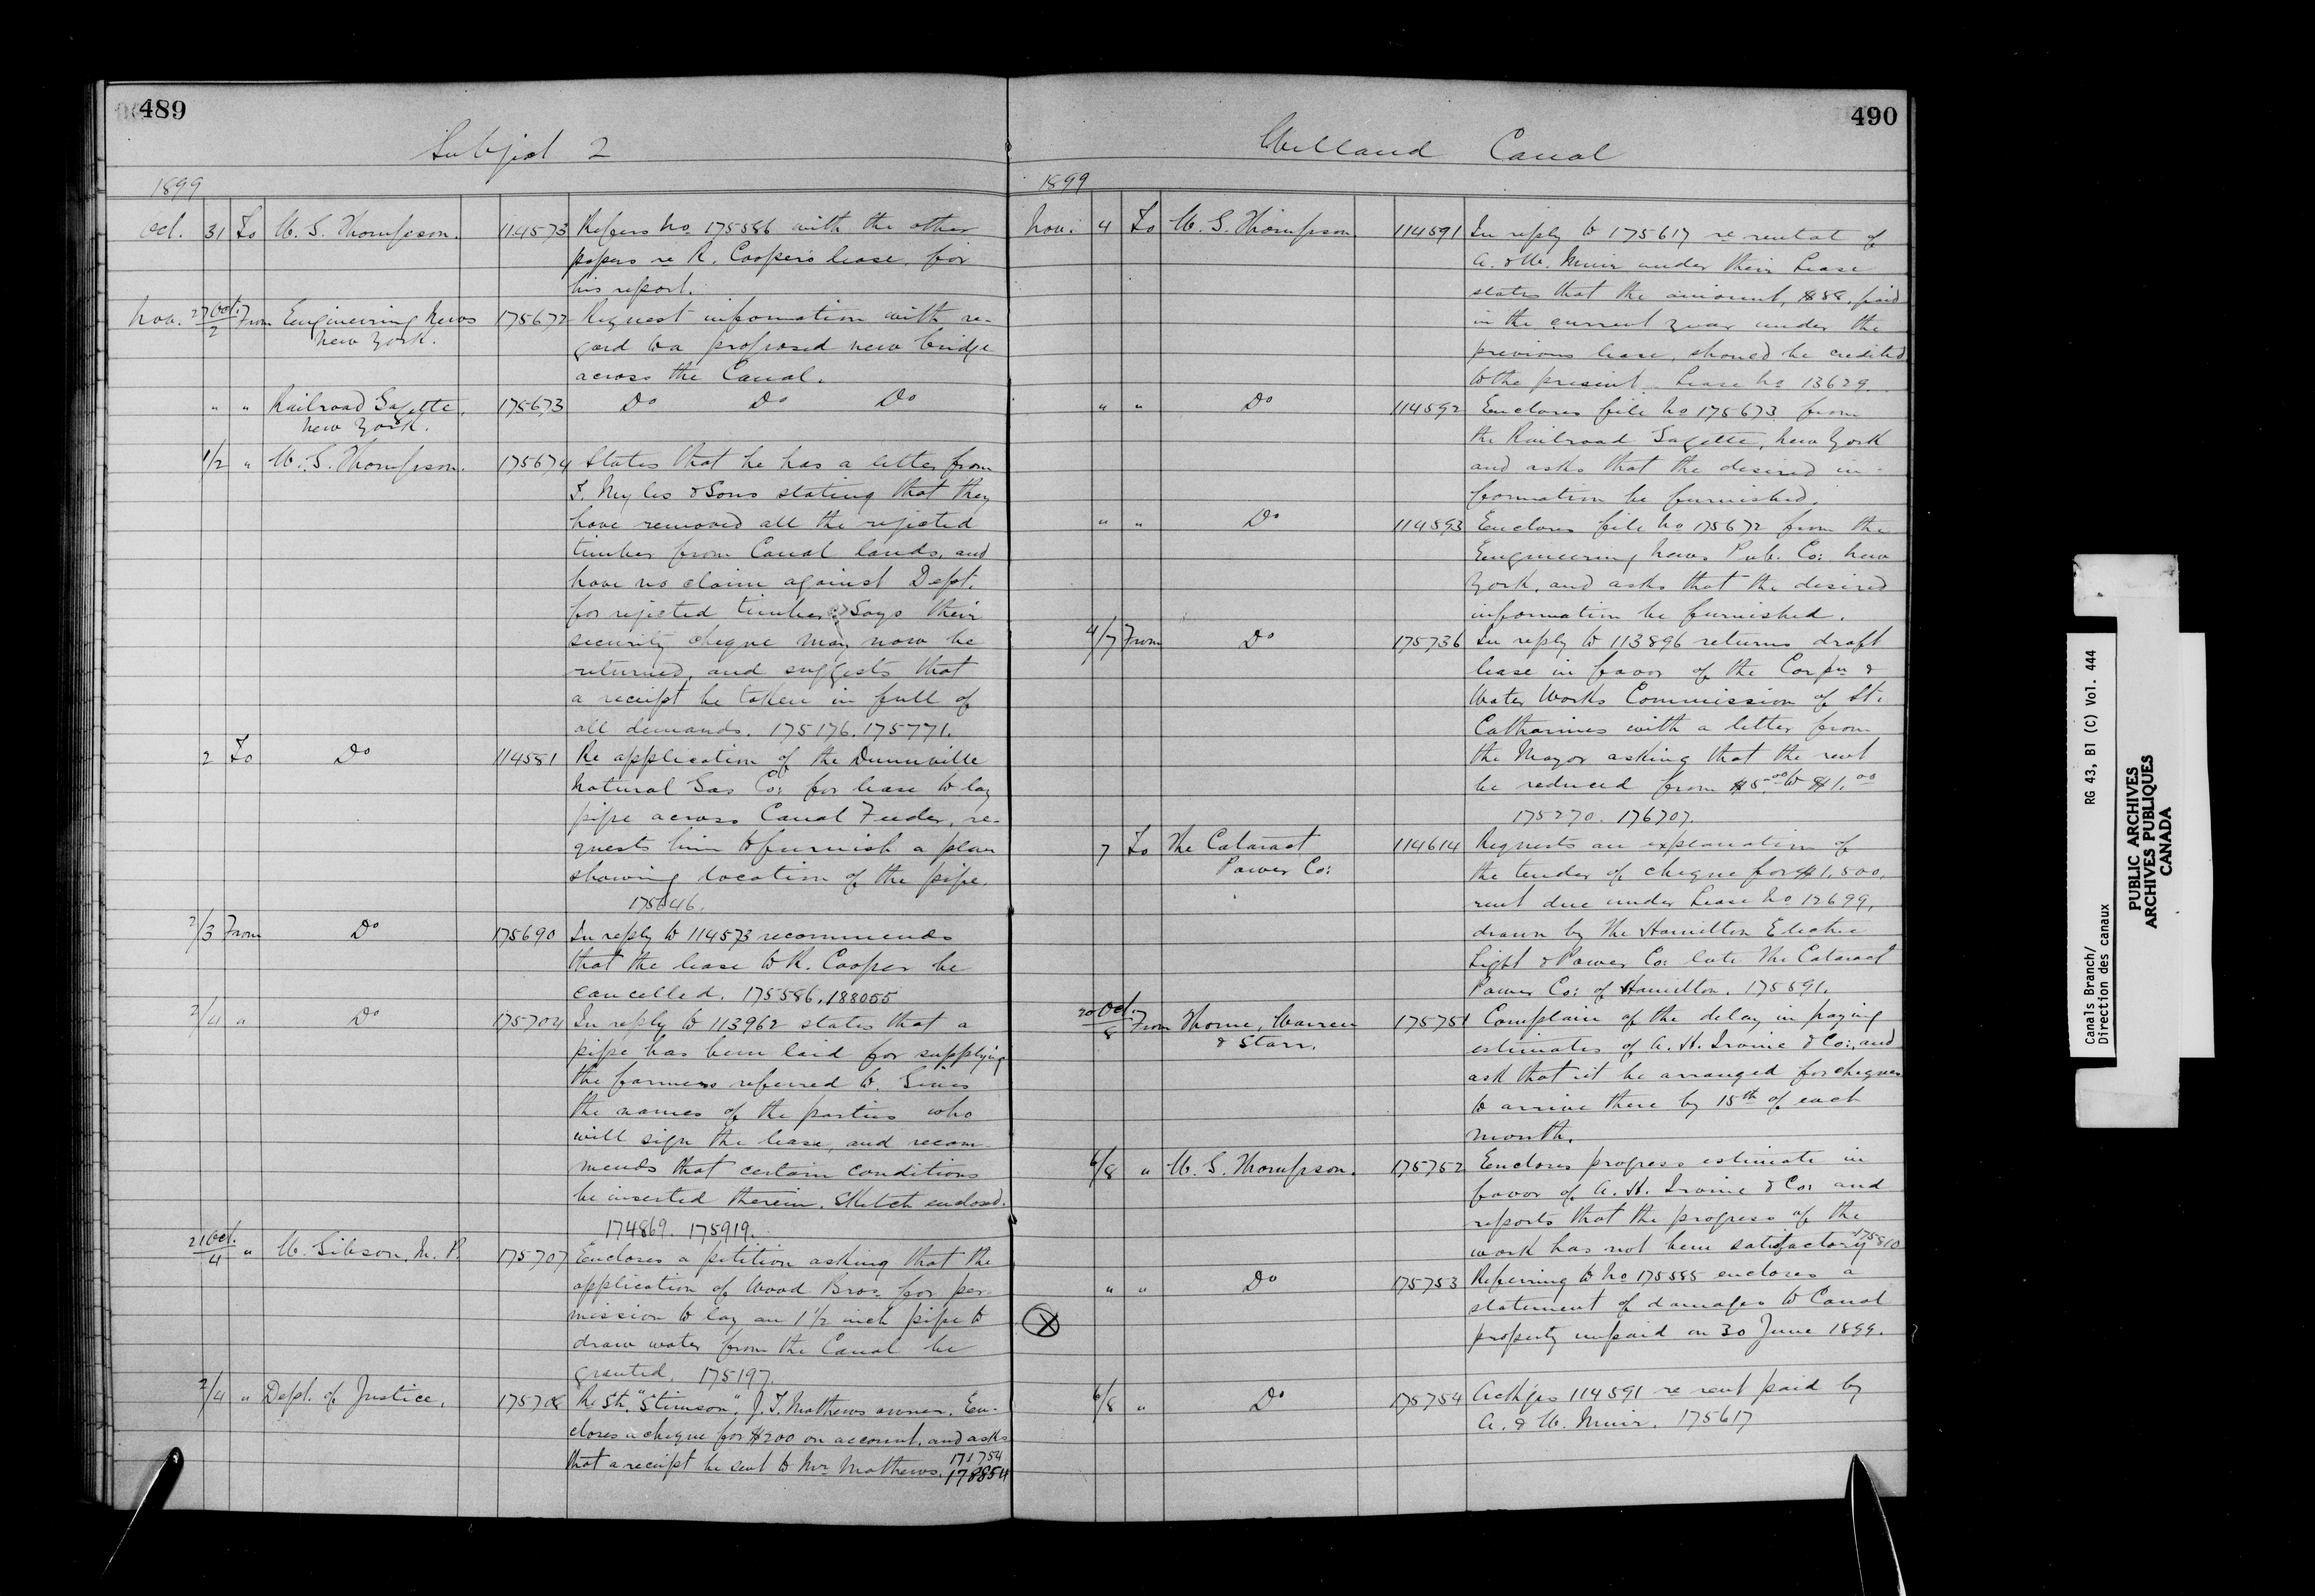 489
Subject 2
1899
Oct. 31 To W. G. Thompson. 114573 Refers No 175586 with the other
papers re R. Cooper's lease, for
his report.
Nov. 27 Oct./2 From Engineering News 175672 Request information with re-
New York. gard to a proposed new bridge
across the Canal.
" " Railroad Gazette, 175673 Do Do Do
New York.
1/2 " W. G. Thompson. 175674 States that he has a letter from
F. Myles & Sons stating that they
have removed all the rejected
timber from Canal lands, and
have no claim against Dept.
for rejected timber. Says their
security cheque may now be
returned, and suggests that
a receipt be taken in full of
all demands. 175176. 175771.
2 To Do 114581 Re application of the Dunnville
Natural Gas Co: for lease to lay
pipe across Canal Feeder, re-
quests him to furnish a plan
showing location of the pipe.
175646.
2/3 From Do 175690 In reply to 114573 recommends
that the lease to R. Cooper be
cancelled. 175586. 188055
2/4 " Do 175704 In reply to 113962 states that a
pipe has been laid for supplying
the farmers referred to. Gives
the names of the parties who
will sign the lease, and recom-
mends that certain conditions
be inserted therein. Sketch enclosed.
174869. 175919.
21 Oct./4 " W. Gibson, M. P. 175707 Encloses a petition asking that the
application of Wood Bros. for per-
mission to lay an 1 1/2 inch pipe to
draw water from the Canal be
granted. 175197.
2/4 " Dept. of Justice. 175708 Re Str. "Stimson", J. T. Mathews owner. En-
closes a cheque for $200 on account, and asks
that a receipt be sent to Mr Mathews. 171754
178854
490
Welland Canal
1899
Nov. 4 To W. G. Thompson 114591 In reply to 175617 re rental of
A. & W. Muir under their Lease
states that the amount, $88. paid
in the current year under the
previous lease, should be credited
to the present Lease No 13629.
" " Do 114592 Encloses file No 175673 from
the Railroad Gazette, New York
and asks that the desired in-
formation be furnished.
" " Do 114593 Encloses file No 175672 from the
Engineering News Pub. Co: New
York, and asks that the desired
information be furnished.
4/7 From Do 175736 In reply to 113896 returns draft
lease in favor of the Corpn &
Water Works Commission of St.
Catharines with a letter from
the Mayor asking that the rent
be reduced from $5.00 to $1.00
175270. 176707.
7 To The Cataract 114614 Requests an explanation of
Power Co: the tender of cheque for $1,500,
rent due under Lease No 12699,
drawn by the Hamilton Electric
Light & Power Co: late The Cataract
Power Co: of Hamilton. 175691.
20 Oct./8 From Thorne, Warren 175751 Complain of the delay in paying
& Starr. estimates of A. H. Irvine & Co:, and
ask that it be arranged for cheques
to arrive there by 15th of each
month.
6/8 " W. G. Thompson. 175752 Encloses progress estimate in
favor of A. H. Irvine & Co: and
reports that the progress of the
work has not been satisfactory 175810
" " Do 175753 Referring to No 175585 encloses a
statement of damages to Canal
property unpaid on 30 June 1899.
6/8 " Do 175754 Ackges 114591 re rent paid by
A. & W. Muir. 175617
Canals Branch/ RG 43, B1 (C) Vol. 444
Direction des canaux
PUBLIC ARCHIVES
ARCHIVES PUBLIQUES
CANADA